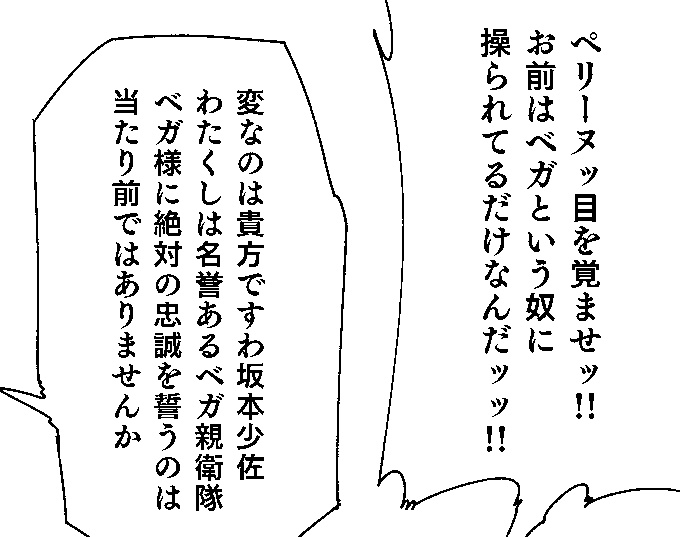 ペリーヌッ目を覚ませッ!!
お前はベガという奴に
操られてるだけなんだッッ!!
変なのは貴方ですわ坂本少佐
わたくしは名誉あるベガ親衛隊
ベガ様に絶対の忠誠を誓うのは
当たり前ではありませんか